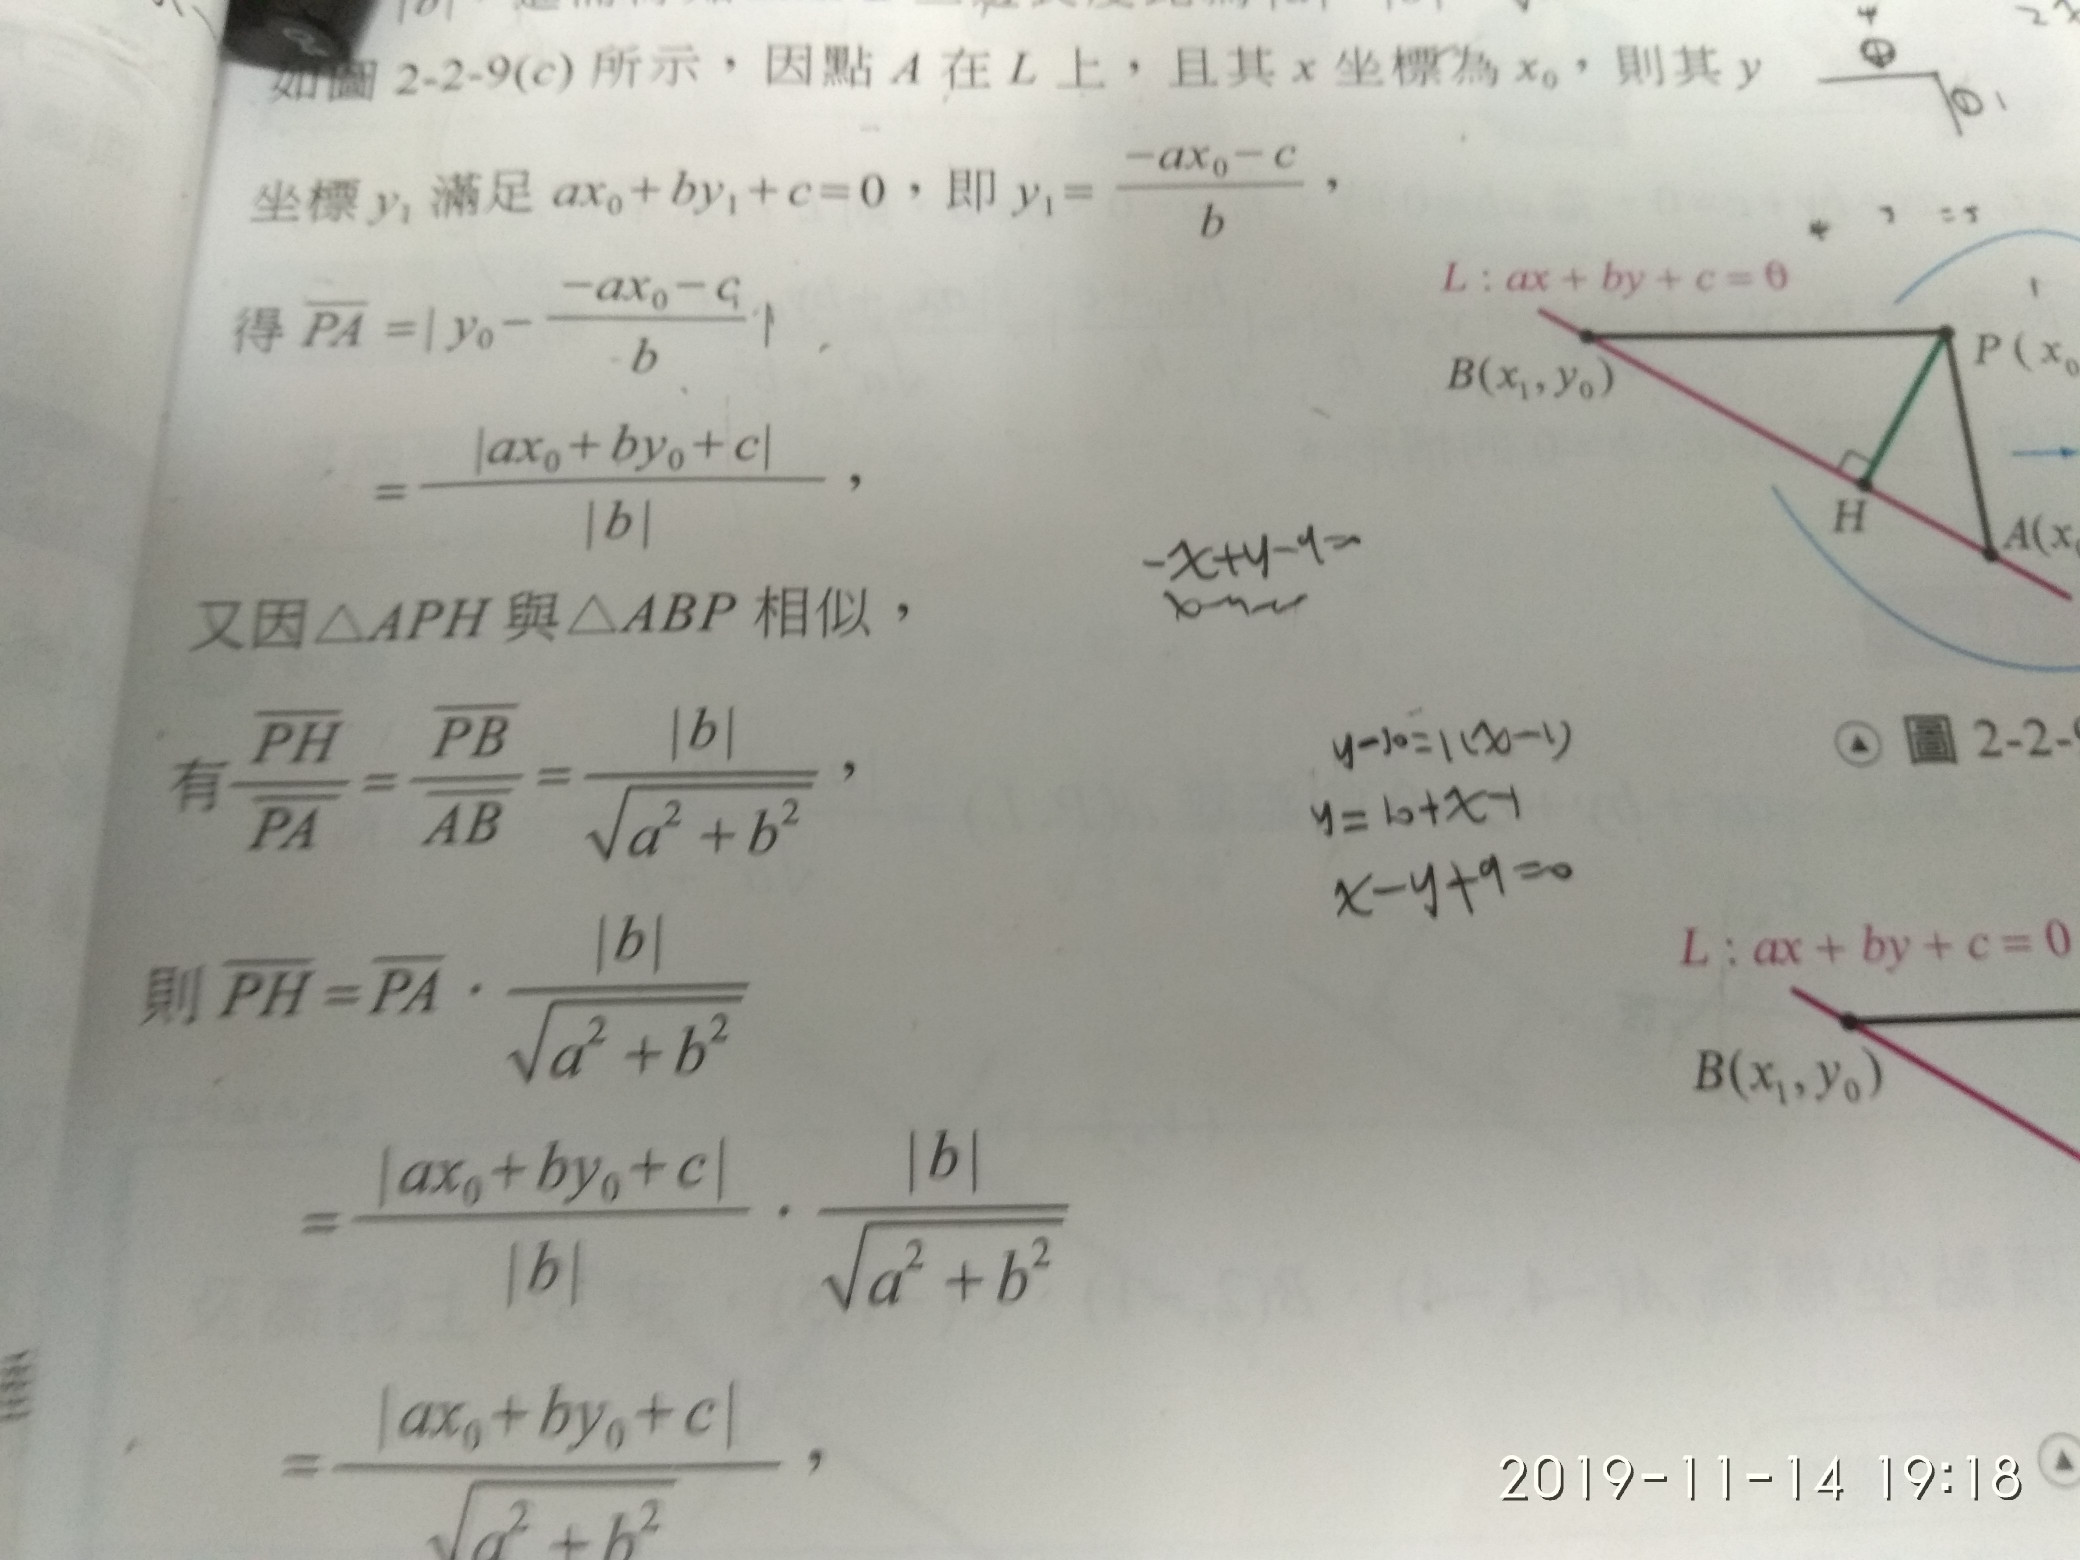 如圖 2-2-9(c) 所示，因點 A 在 L 上，且其 x 坐標為 x₀，則其 y
坐標 y₁ 滿足 ax₀+by₁+c=0，即 y₁= (−ax₀−c)/b，
得 PA =| y₀− (−ax₀−c)/b |
= |ax₀+by₀+c| / |b|，
又因△APH 與△ABP 相似，
有 PH/PA = PB/AB = |b| / √(a²+b²)，
則 PH = PA · |b| / √(a²+b²)
= |ax₀+by₀+c| / |b| · |b| / √(a²+b²)
= |ax₀+by₀+c| / √(a²+b²)，
L : ax + by + c = 0
B(x₁, y₀)
P ( x₀
H
A(x₀
-x+y-9=
y-10=1(x-1)
y=10+x-1
x-y+9=0
圖 2-2-9
L : ax + by + c = 0
B(x₁, y₀)
2019-11-14 19:18